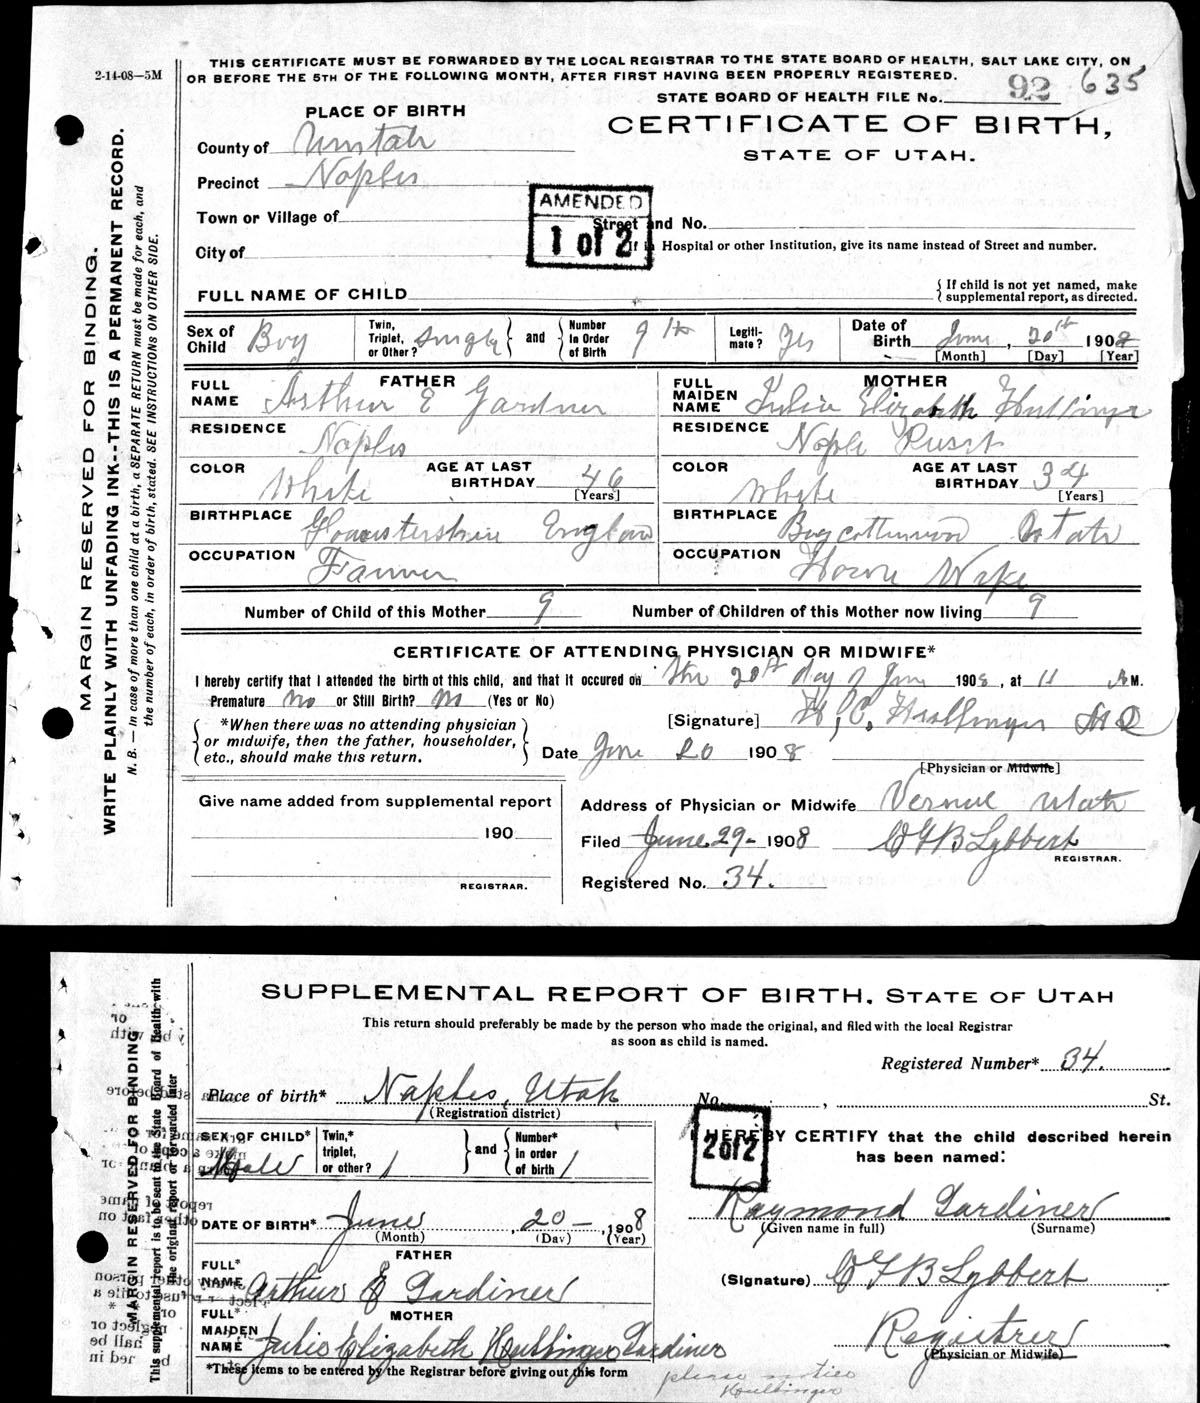 2-14-08—5M
THIS CERTIFICATE MUST BE FORWARDED BY THE LOCAL REGISTRAR TO THE STATE BOARD OF HEALTH, SALT LAKE CITY, ON
OR BEFORE THE 5TH OF THE FOLLOWING MONTH, AFTER FIRST HAVING BEEN PROPERLY REGISTERED.
STATE BOARD OF HEALTH FILE No. 92 635
PLACE OF BIRTH
CERTIFICATE OF BIRTH,
STATE OF UTAH.
County of Uintah
Precinct Naples
Town or Village of
Street and No.
AMENDED
1 of 2
City of
If in Hospital or other Institution, give its name instead of Street and number.
FULL NAME OF CHILD
{ If child is not yet named, make
supplemental report, as directed.
Sex of Child Boy
Twin, Triplet, or Other? single } and { Number in Order of Birth 9th
Legiti- mate? Yes
Date of Birth June, 20th 1908
[Month] [Day] [Year]
FATHER
FULL NAME Arthur E Gardner
MOTHER
FULL MAIDEN NAME Julia Elizabeth Hullinger
RESIDENCE Naples
RESIDENCE Naple
COLOR White
AGE AT LAST BIRTHDAY 46
[Years]
COLOR White
AGE AT LAST BIRTHDAY 34
[Years]
BIRTHPLACE England
BIRTHPLACE Utah
OCCUPATION Farmer
OCCUPATION House Wife
Number of Child of this Mother 9
Number of Children of this Mother now living 9
CERTIFICATE OF ATTENDING PHYSICIAN OR MIDWIFE*
I hereby certify that I attended the birth of this child, and that it occured on the 20th day of June 1908, at 11 M.
Premature no or Still Birth? No (Yes or No)
[Signature] H. C. Hullinger MD
{ *When there was no attending physician
or midwife, then the father, householder,
etc., should make this return. }
Date June 20 1908
[Physician or Midwife]
Give name added from supplemental report
Address of Physician or Midwife Vernal Utah
190
Filed June 29- 1908
C F B Lybbert
REGISTRAR.
REGISTRAR.
Registered No. 34.
MARGIN RESERVED FOR BINDING.
WRITE PLAINLY WITH UNFADING INK--THIS IS A PERMANENT RECORD.
N. B. — In case of more than one child at a birth, a SEPARATE RETURN must be made for each, and
the number of each, in order of birth, stated. SEE INSTRUCTIONS ON OTHER SIDE.
SUPPLEMENTAL REPORT OF BIRTH. STATE OF UTAH
This return should preferably be made by the person who made the original, and filed with the local Registrar
as soon as child is named.
Registered Number* 34.
Place of birth* Naples, Utah No. , St.
(Registration district)
SEX OF CHILD* Male
Twin,* triplet, or other? 1 } and { Number* in order of birth 1
2 of 2
I HEREBY CERTIFY that the child described herein
has been named:
Raymond Gardiner
(Given name in full) (Surname)
DATE OF BIRTH* June, 20-, 1908
(Month) (Day) (Year)
FATHER
FULL* NAME Arthur E Gardiner
(Signature) C F B Lybbert
MOTHER
FULL* MAIDEN NAME Julie Elizabeth Hullinger Gardiner
Registrer
(Physician or Midwife)
*These items to be entered by the Registrar before giving out this form
please notice
Hullinger
MARGIN RESERVED FOR BINDING
This supplemental report is to be sent to the State Board of Health with
the original report or forwarded later